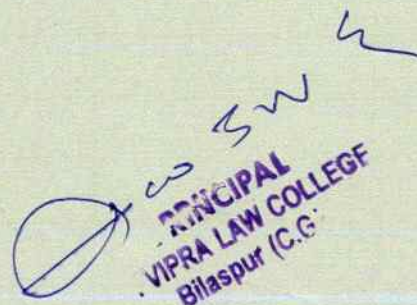 PRINCIPAL
VIPRA LAW COLLEGE
Bilaspur (C.G.